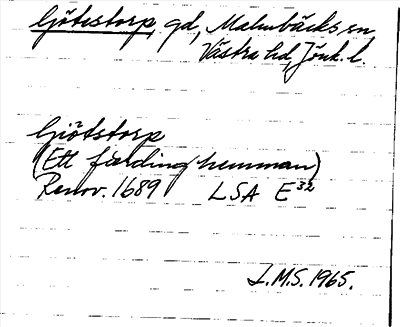 Götestorp, gd, Malmbäcks sn,
Västra hd, Jönk. l.
Giötstorp
(Ett färding hemman)
Renov. 1689 LSA E32
I.M.S. 1965.